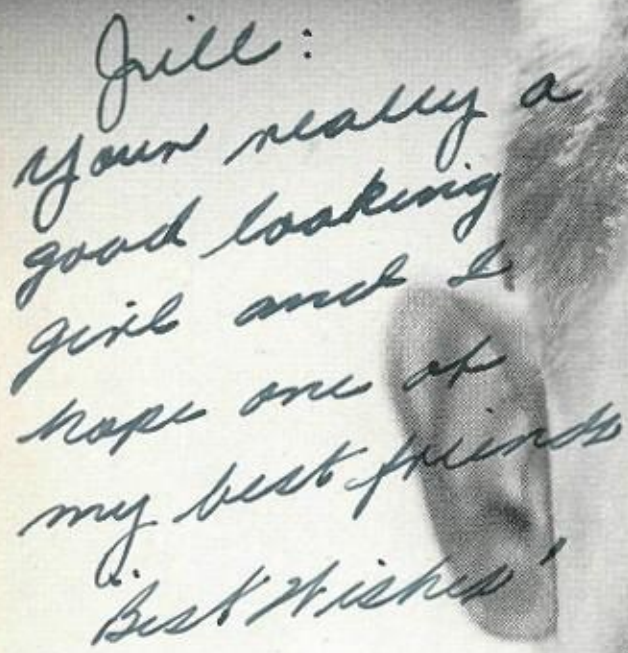 Jill:
Your really a
good looking
girl and I
hope one of
my best friends
"Best Wishes"